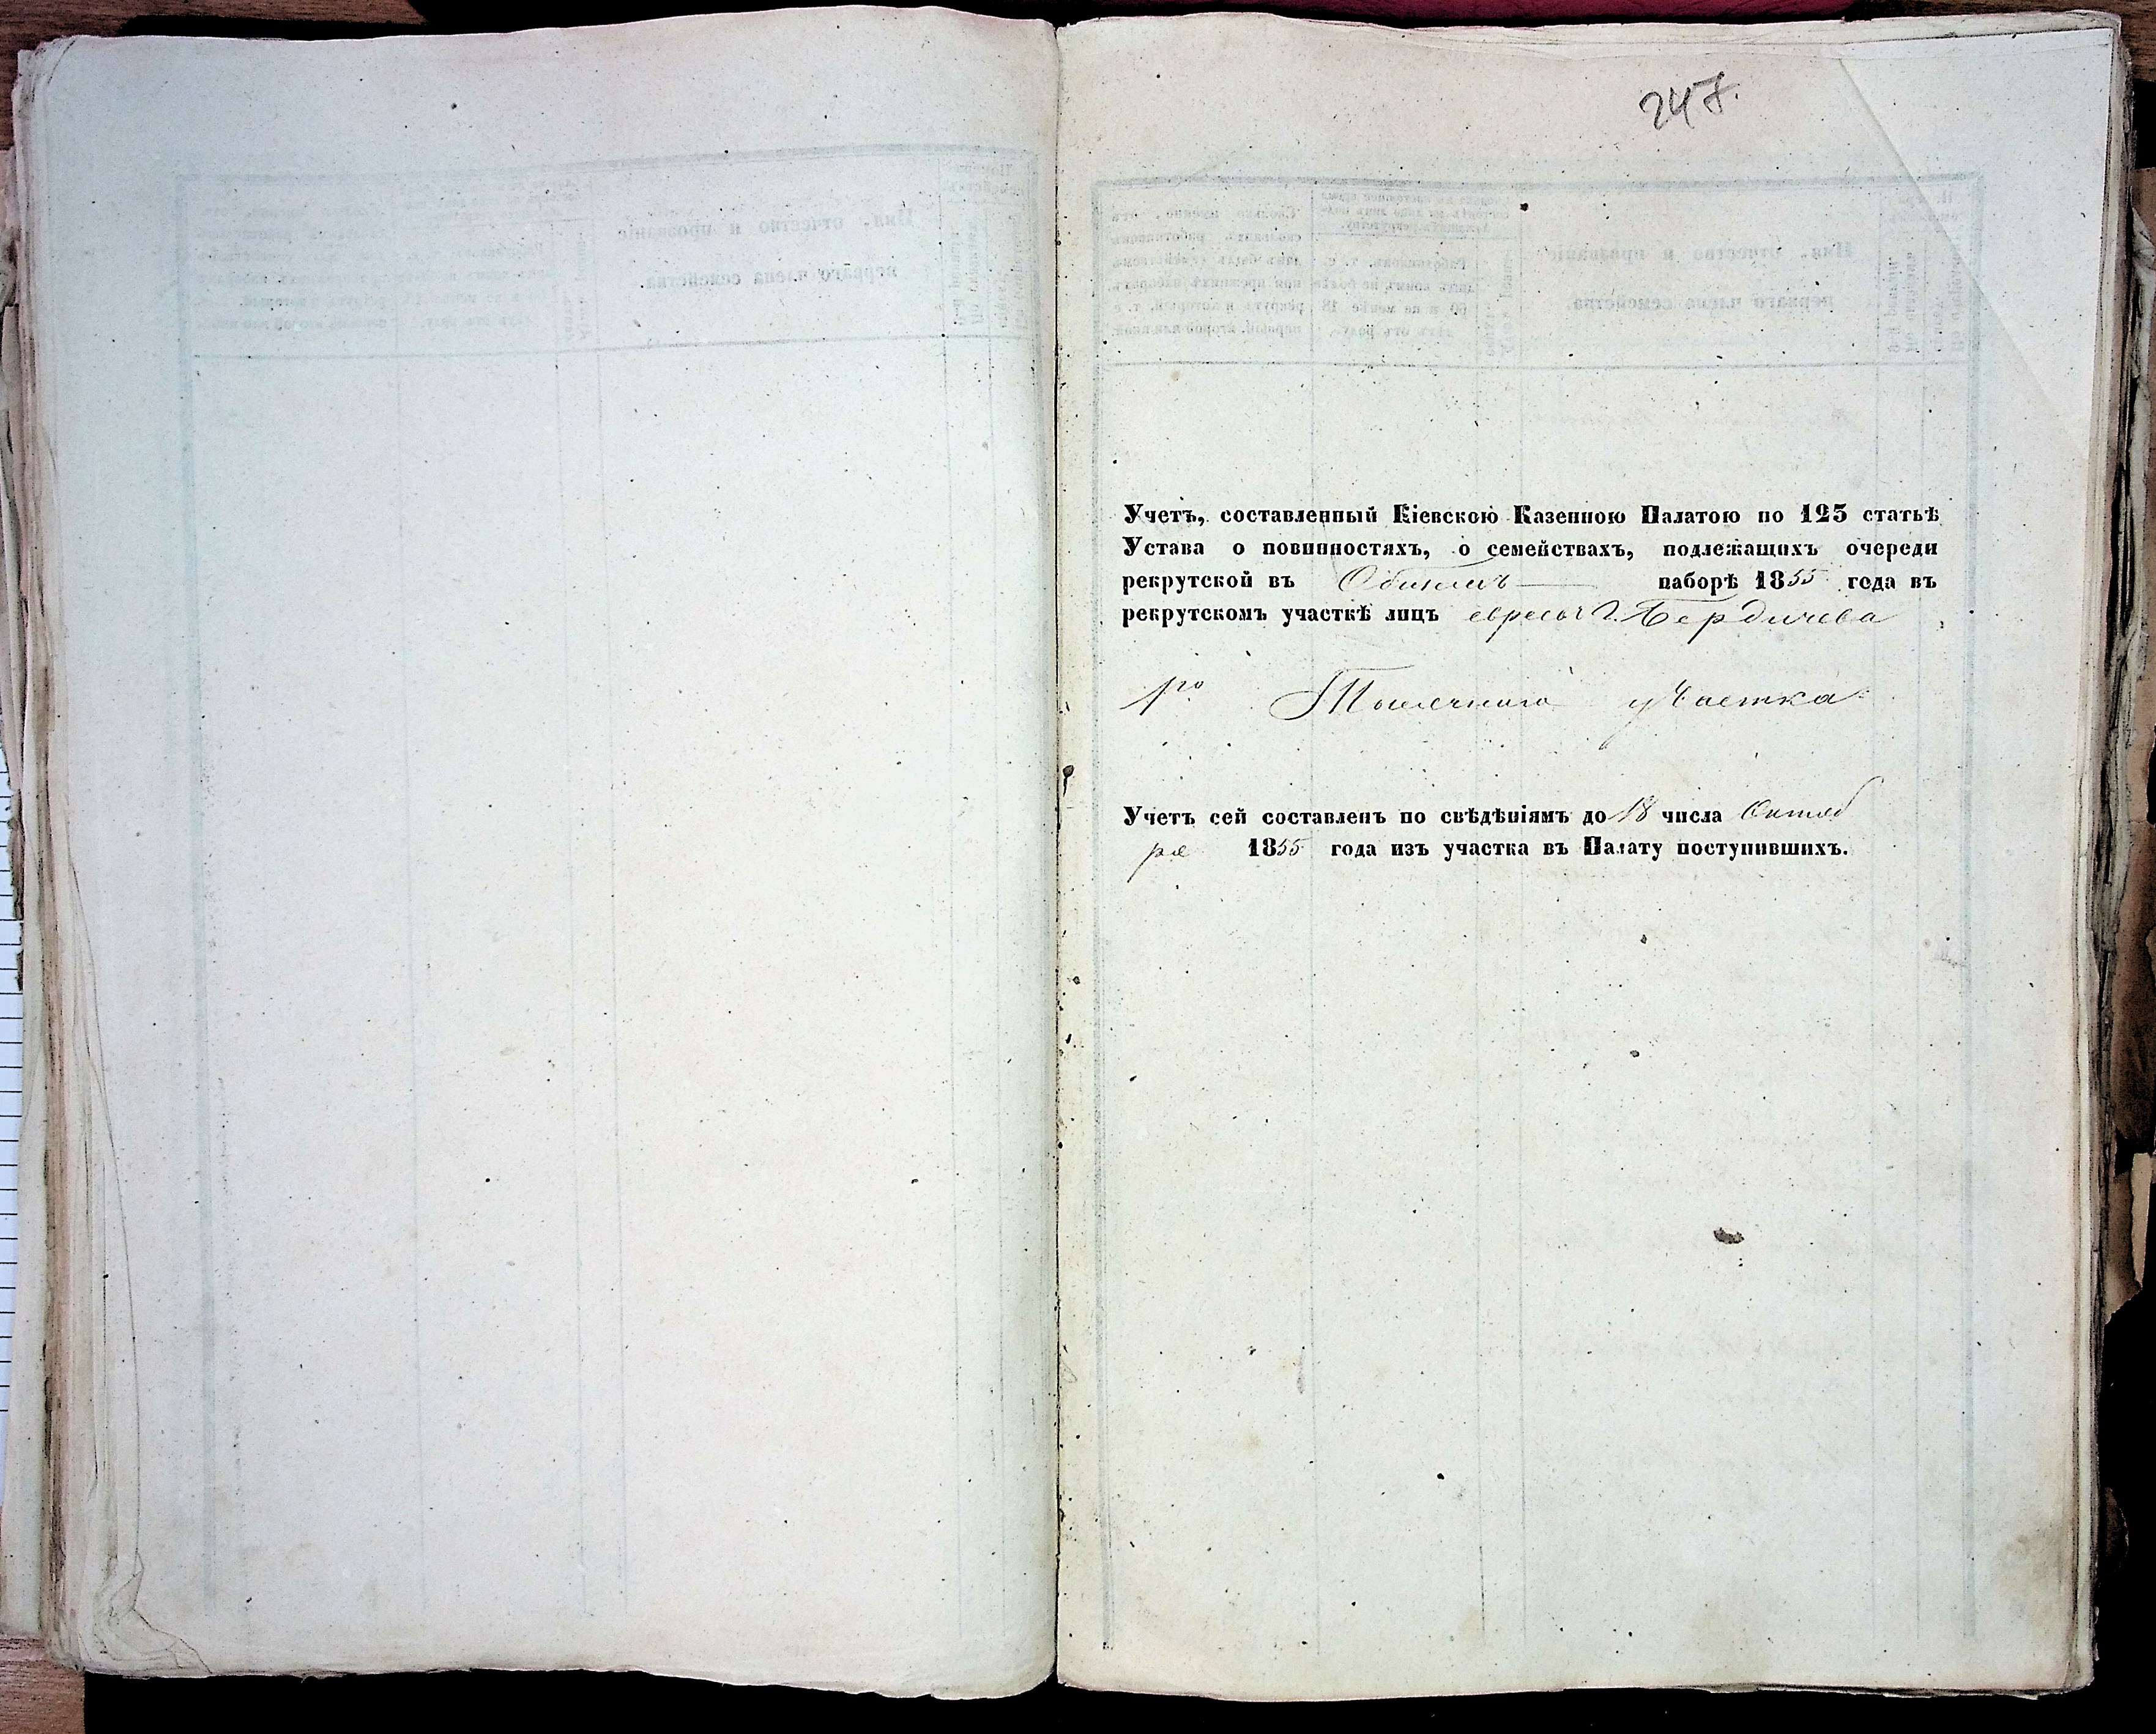 247.
Учетъ, составленный Кіевскою Казенною Палатою по 125 статьѣ
Устава о повинностяхъ, о семействахъ, подлежащихъ очереди
рекрутской въ Общемъ наборѣ 1855 года въ
рекрутскомъ участкѣ лицъ евреевъ г. Бердичева
1го Тысячнаго участка
Учетъ сей составленъ по свѣдѣніямъ до 18 числа Октяб
ря 1855 года изъ участка въ Палату поступившихъ.